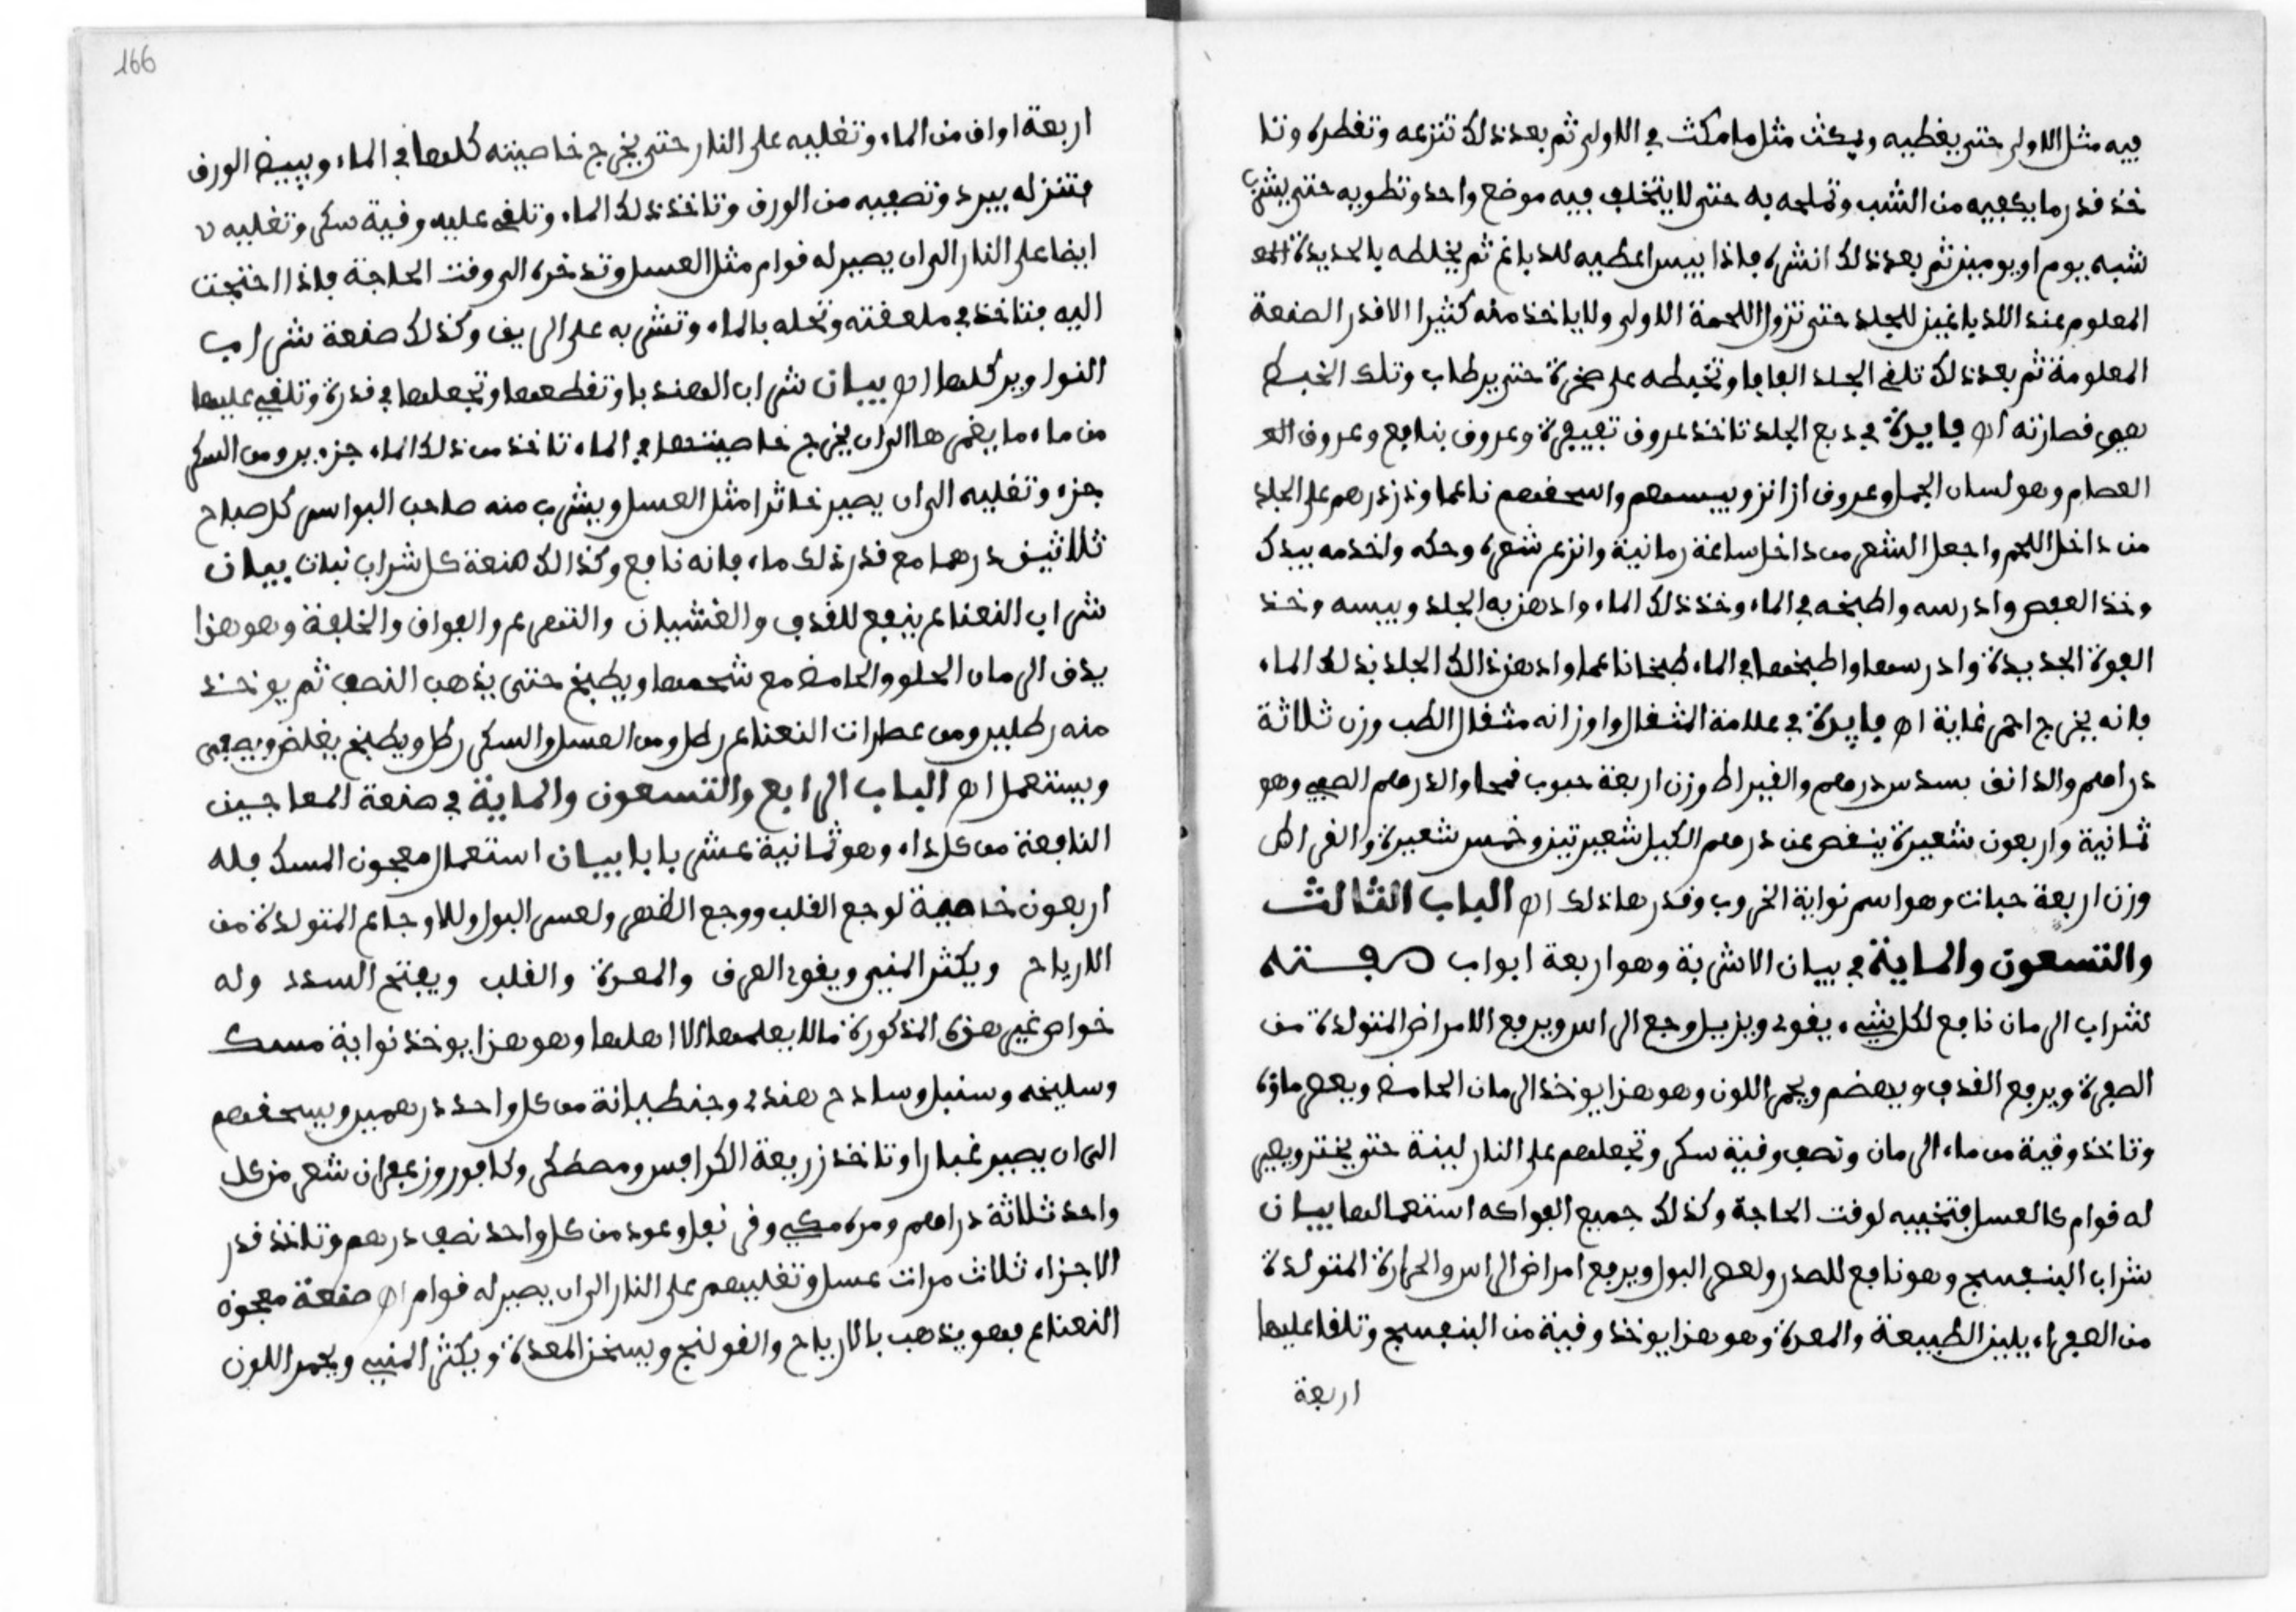 فيه مثل الاولى حتى يغطيه ويمكث مثل ما مكث في الاولى ثم بعد ذلك تنزعه وتقطره وتا
خذ قدر ما يكفيه من الشب وتملحه به حتى لا يتخلف فيه موضع واحد وتطويه حتى يشرب
شبه يوم او يومين ثم بعد ذلك انشره فاذا يبس اعطيه للدباغ ثم يخلطه بالحديدة
المعلوم عند الدباغين للجلد حتى تزول اللحمة الاولى ولا ياخذ منه كثيرا الا قدر الصنعة
المعلومة ثم بعد ذلك تلقى الجلد وتخبطه على صخرة حتى يرطاب وتلك الخبط
هي قصارته اه فايدة في دبغ الجلد تاخذ عروف وعروف وعروف
العصام وهو لسان الجمل وعروف ازانز ويبسهم واسحقهم ناعما وذرذرهم على الجلد
من داخل اللحم واجعل الشعر من داخل ساعة زمانية وانزع شعره وحكه واخدمه بيدك
وخذ العفص وادرسه واطبخه في الماء وخذ ذلك الماء وادهن به الجلد ويبسه وخذ
الفوة الجديدة وادرسها واطبخها في الماء طبخا ناعما وادهن ذالك الجلد بذلك الماء
فانه يخرج احمر غاية اه فايدة في علامة المثقال واوزانه مثقال الطب وزن ثلاثة
دراهم والدانق بسدس درهم والقيراط وزن اربعة حبوب قمحا والدرهم الصيي وهو
ثمانية واربعون شعيرة ينقص عن درهم الكيل شعيرتين وخمس شعيرة والقراط
وزن اربعة حبات وهو اسم نواية الخروب وقدرها ذلك اه الباب الثالث
والتسعون والماية في بيان الاشربة وهو اربعة ابواب صفته
شراب الرمان نافع لكل شيء يقوى ويزيل وجع الراس ويرفع الامراض المتولدة من
الصفرة ويرفع القذف ويهضم ويحمر اللون وهو هزا يوخذ الرمان الحامض ويعصر ماؤه
وتاخذ وقية من ماء الرمان ونصف وقية سكر وتجعلهم على النار لينة حتى يخثر ويصير
له قوام كالعسل فتخبيه لوقت الحاجة وكذلك جميع الفواكه استعمالها بيان
شراب البنفسج وهو نافع للصدر ولعصر البول ويرفع امراض الراس والحرارة المتولدة
من الصفراء يلين الطبيعة والمعدة وهو هزا يوخذ وقية من البنفسج وتلقا عليها
اربعة
166
اربعة اواق من الماء وتغليه على النار حتى يخرج خاصيته كلها في الماء ويبيض الورق
فتنزله يبرد وتصفيه من الورق وتاخذ ذلك الماء وتلقى عليه وقية سكر وتغليه
ايضا على النار الى ان يصير له قوام مثل العسل وتدخره الى وقت الحاجة فاذا احتجت
اليه فتاخذ في ملعقته وتحله بالماء وتشربه على الريق وكذلك صنعة شراب
النوار كلها اه بيان شراب الهندبا وتقطعها وتجعلها في قدرة وتلقى عليها
من ماء ما يغمرها الى ان يخرج خاصيتها في الماء تاخذ من ذلك الماء جزءين ومن السكر
جزء وتغليه الى ان يصير خاثرا مثل العسل ويشرب منه صاحب البواسر كل صباح
ثلاثين درهما مع قدر ذلك ماء فانه نافع وكذالك صنعة كل شراب نبات بيان
شراب النعناع ينفع للقذف والغشيان والتهرع والفواق والخلفة وهو هزا
يدق الرمان الحلو والحامض مع شحمها ويطبخ حتى يذهب النصف ثم يوخذ
منه رطلين ومن عصارات النعناع رطل ومن العسل والسكر رطل ويطبخ يغلض ويصفى
ويستعمل اه الباب الرابع والتسعون والماية في صنعة المعاجين
النافعة من كل داء وهو ثمانية عشر بابا بيان استعمال معجون المسك فله
اربعون خاصية لوجع القلب ووجع الظهر ولعسر البول وللاوجاع المتولدة من
الارياح ويكثر المني ويقوى العرق والمعدة والقلب ويفتح السدد وله
خواص غير هذه المذكورة ما لا يعلمها الا اهلها وهو هزا يوخذ نواية مسك
وسليخه وسنبل وساذج هندى وجنطيانة من كل واحد درهمين ويسحقهم
الى ان يصير غبارا وتاخذ زريعة الكرافس ومصطكى وكافور وزعفران شعر من كل
واحد ثلاثة دراهم ومره مكي وقرنفل وعود من كل واحد نصف درهم وتاخذ قدر
الاجزاء ثلاث مرات عسل وتغليهم على النار الى ان يصير له قوام اه صنعة معجون
النعناع فهو يذهب بالارياح والقولنج ويسخن المعدة ويكثر المني ويحمر اللون